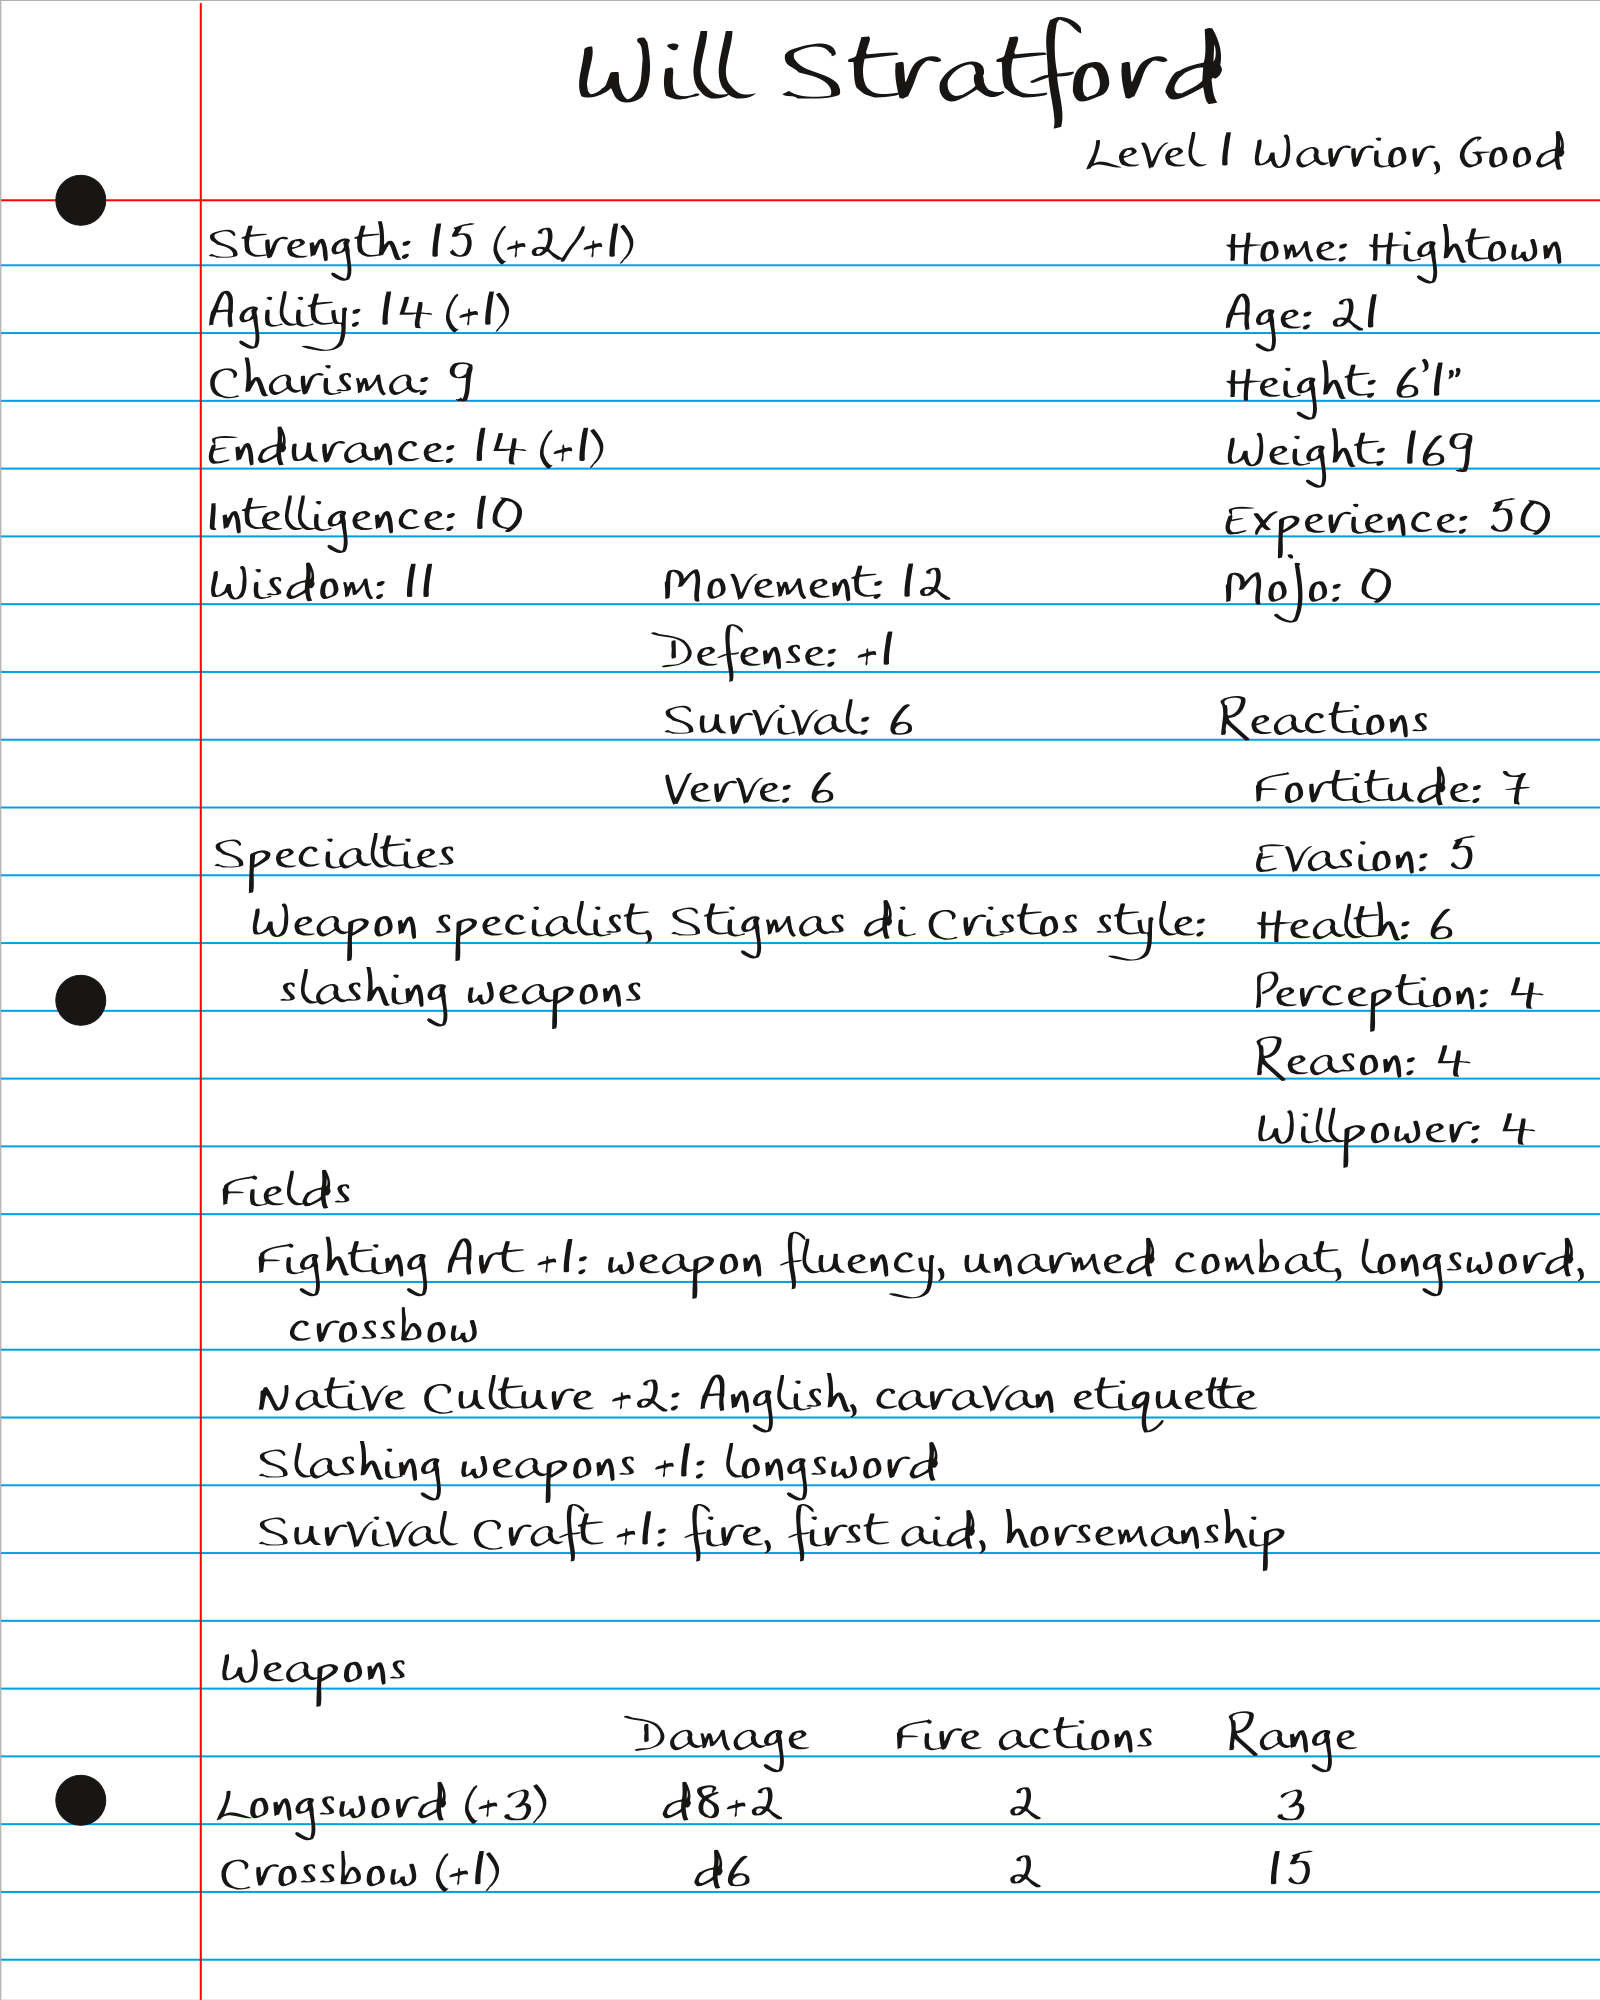 Will Stratford
Level 1 Warrior, Good
Strength: 15 (+2/+1)
Home: Hightown
Agility: 14 (+1)
Age: 21
Charisma: 9
Height: 6'1"
Endurance: 14 (+1)
Weight: 169
Intelligence: 10
Experience: 50
Wisdom: 11
Movement: 12
Mojo: 0
Defense: +1
Survival: 6
Reactions
Verve: 6
Fortitude: 7
Specialties
Evasion: 5
Weapon specialist, Stigmas di Cristos style:
Health: 6
slashing weapons
Perception: 4
Reason: 4
Willpower: 4
Fields
Fighting Art +1: weapon fluency, unarmed combat, longsword,
crossbow
Native Culture +2: Anglish, caravan etiquette
Slashing weapons +1: longsword
Survival Craft +1: fire, first aid, horsemanship
Weapons
Damage Fire actions Range
Longsword (+3) d8+2 2 3
Crossbow (+1) d6 2 15